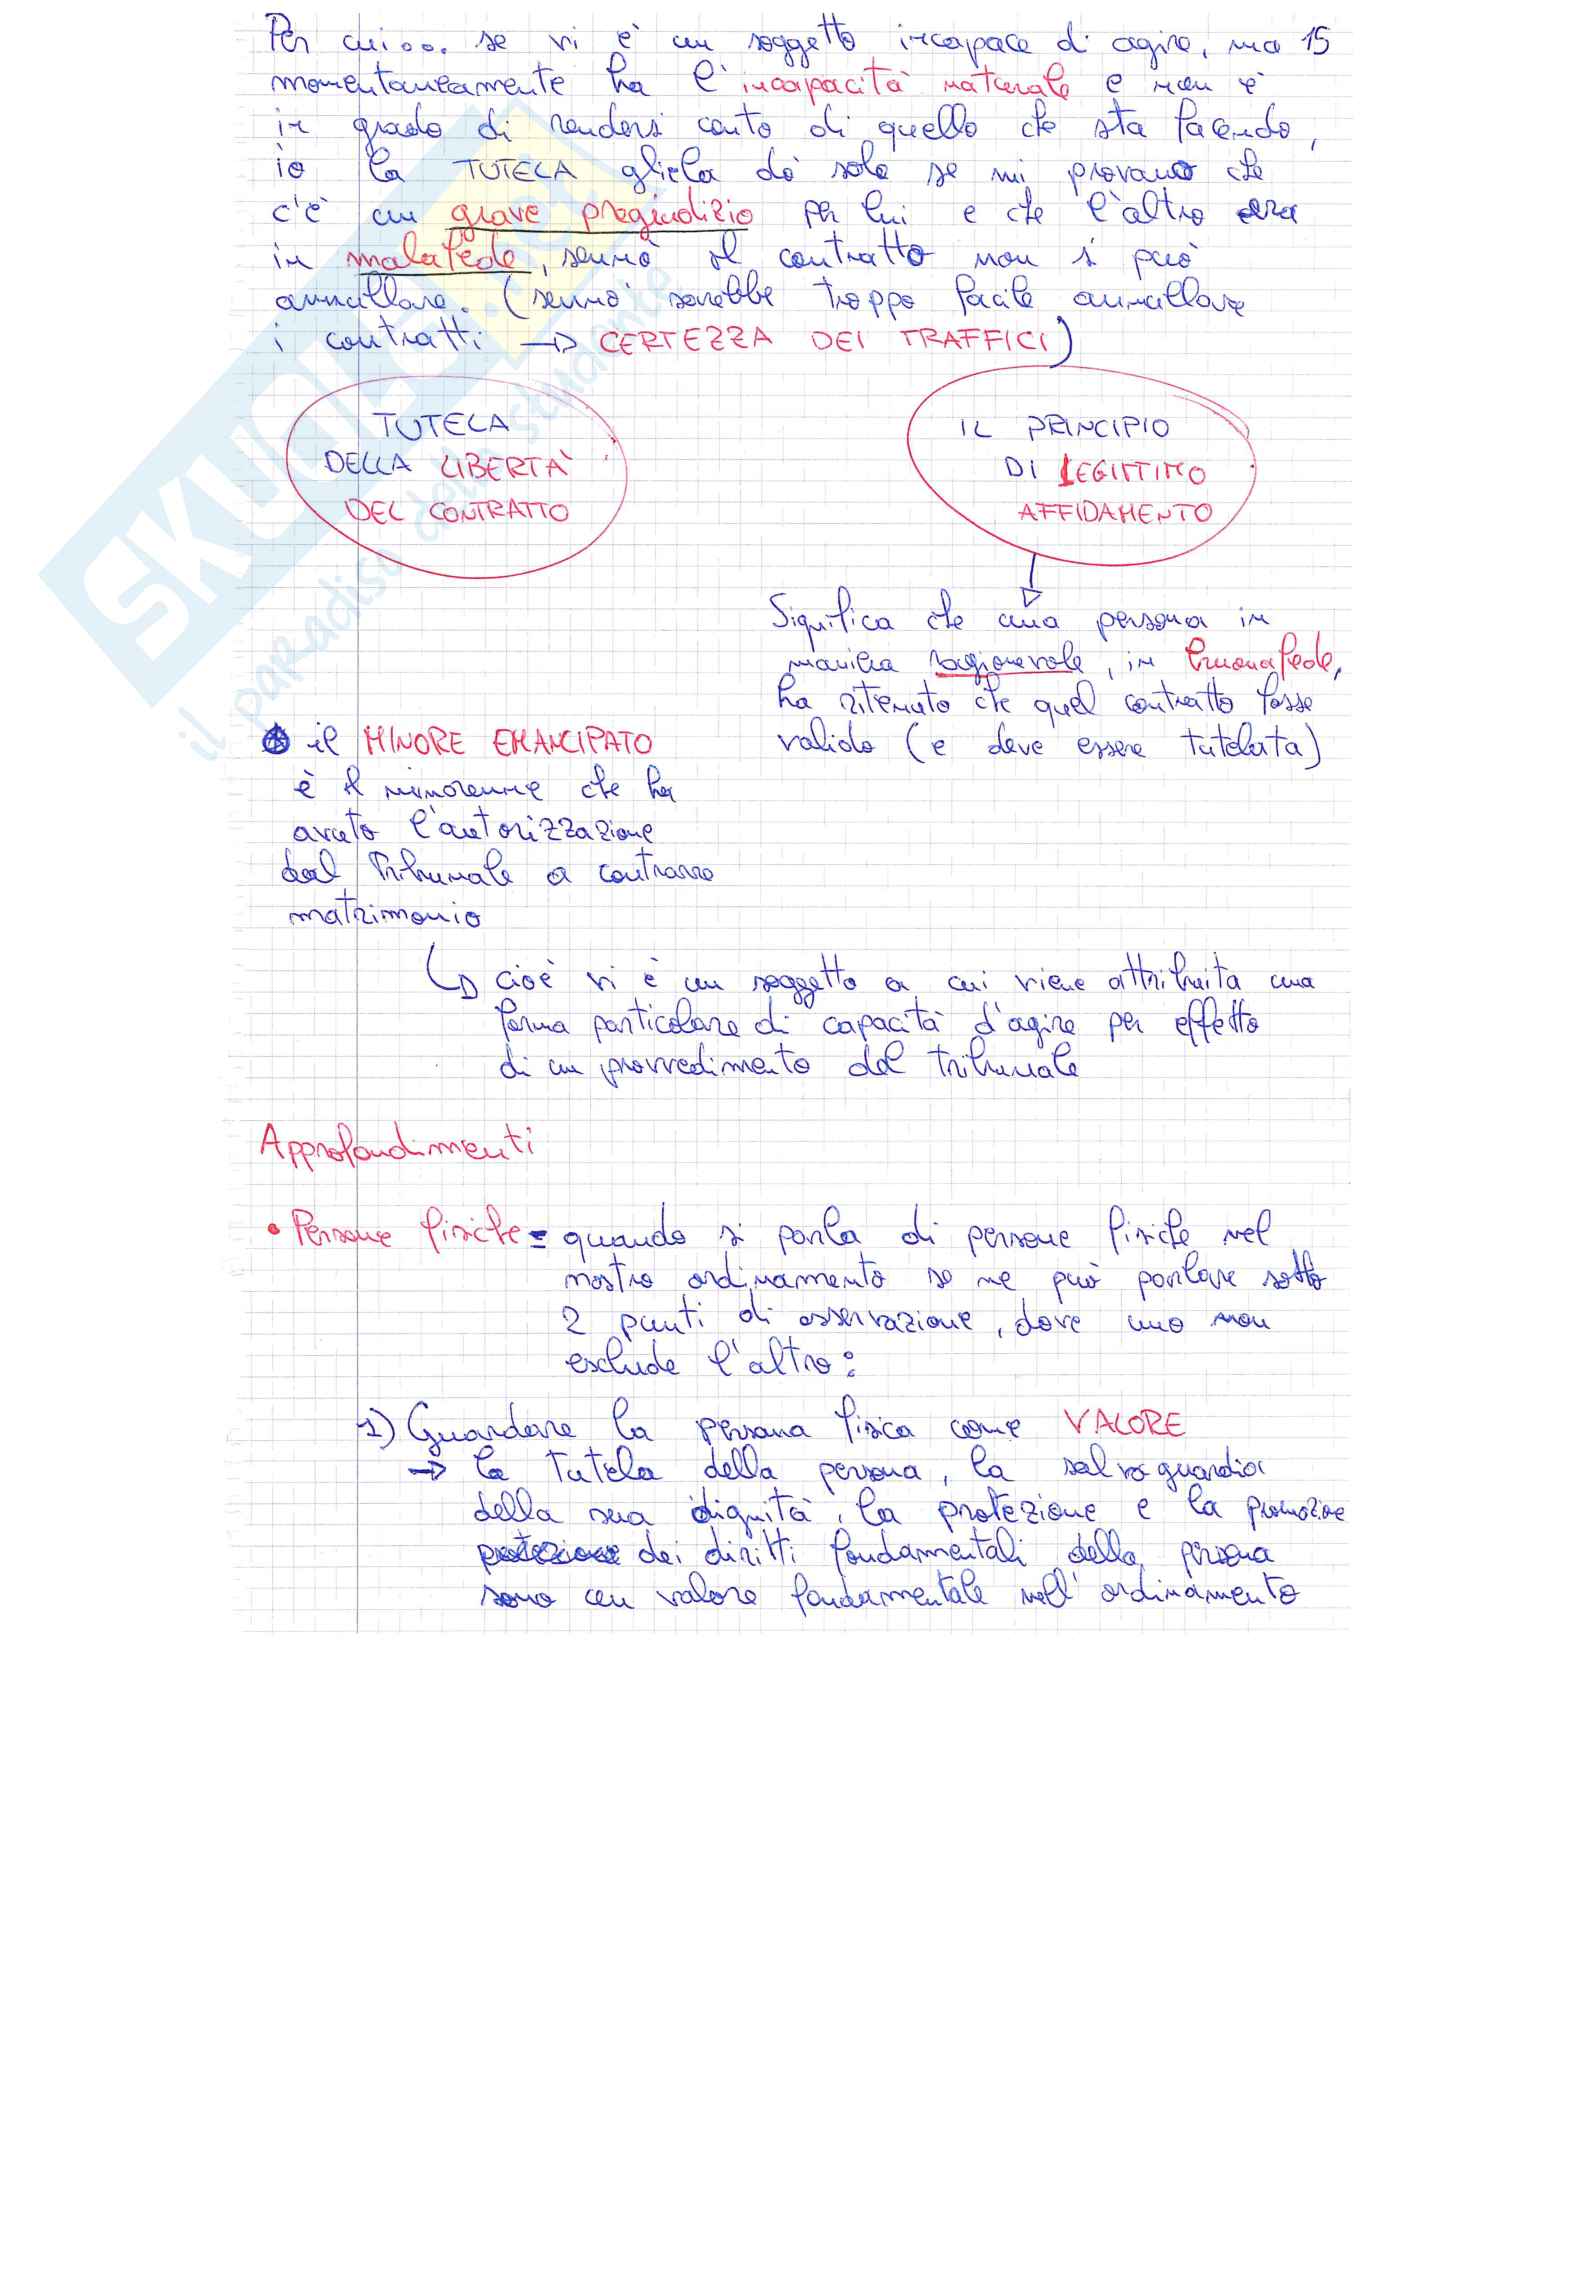 Per cui... se vi è un soggetto incapace di agire, ma 15
momentaneamente ha l'incapacità naturale e non è
in grado di rendersi conto di quello che sta facendo,
io la TUTELA gliela dò solo se mi provano che
c'è un grave pregiudizio per lui e che l'altro era
in malafede, sennò il contratto non si può
annullare. (sennò sarebbe troppo facile annullare
i contratti → CERTEZZA DEI TRAFFICI)
TUTELA
DELLA LIBERTÀ
DEL CONTRATTO
IL PRINCIPIO
DI LEGITTIMO
AFFIDAMENTO
Significa che una persona in
maniera ragionevole, in buonafede,
ha ritenuto che quel contratto fosse
valido (e deve essere tutelata)
il MINORE EMANCIPATO
è il minorenne che ha
avuto l'autorizzazione
dal Tribunale a contrarre
matrimonio
cioè vi è un soggetto a cui viene attribuita una
forma particolare di capacità d'agire per effetto
di un provvedimento del tribunale
Approfondimenti
• Persone fisiche = quando si parla di persone fisiche nel
nostro ordinamento se ne può parlare sotto
2 punti di osservazione, dove uno non
esclude l'altro:
1) Guardare la persona fisica come VALORE
→ la tutela della persona, la salvaguardia
della sua dignità, la protezione e la promozione
dei diritti fondamentali della persona
sono un valore fondamentale nell'ordinamento
SKUOLA.net
il paradiso dello studente